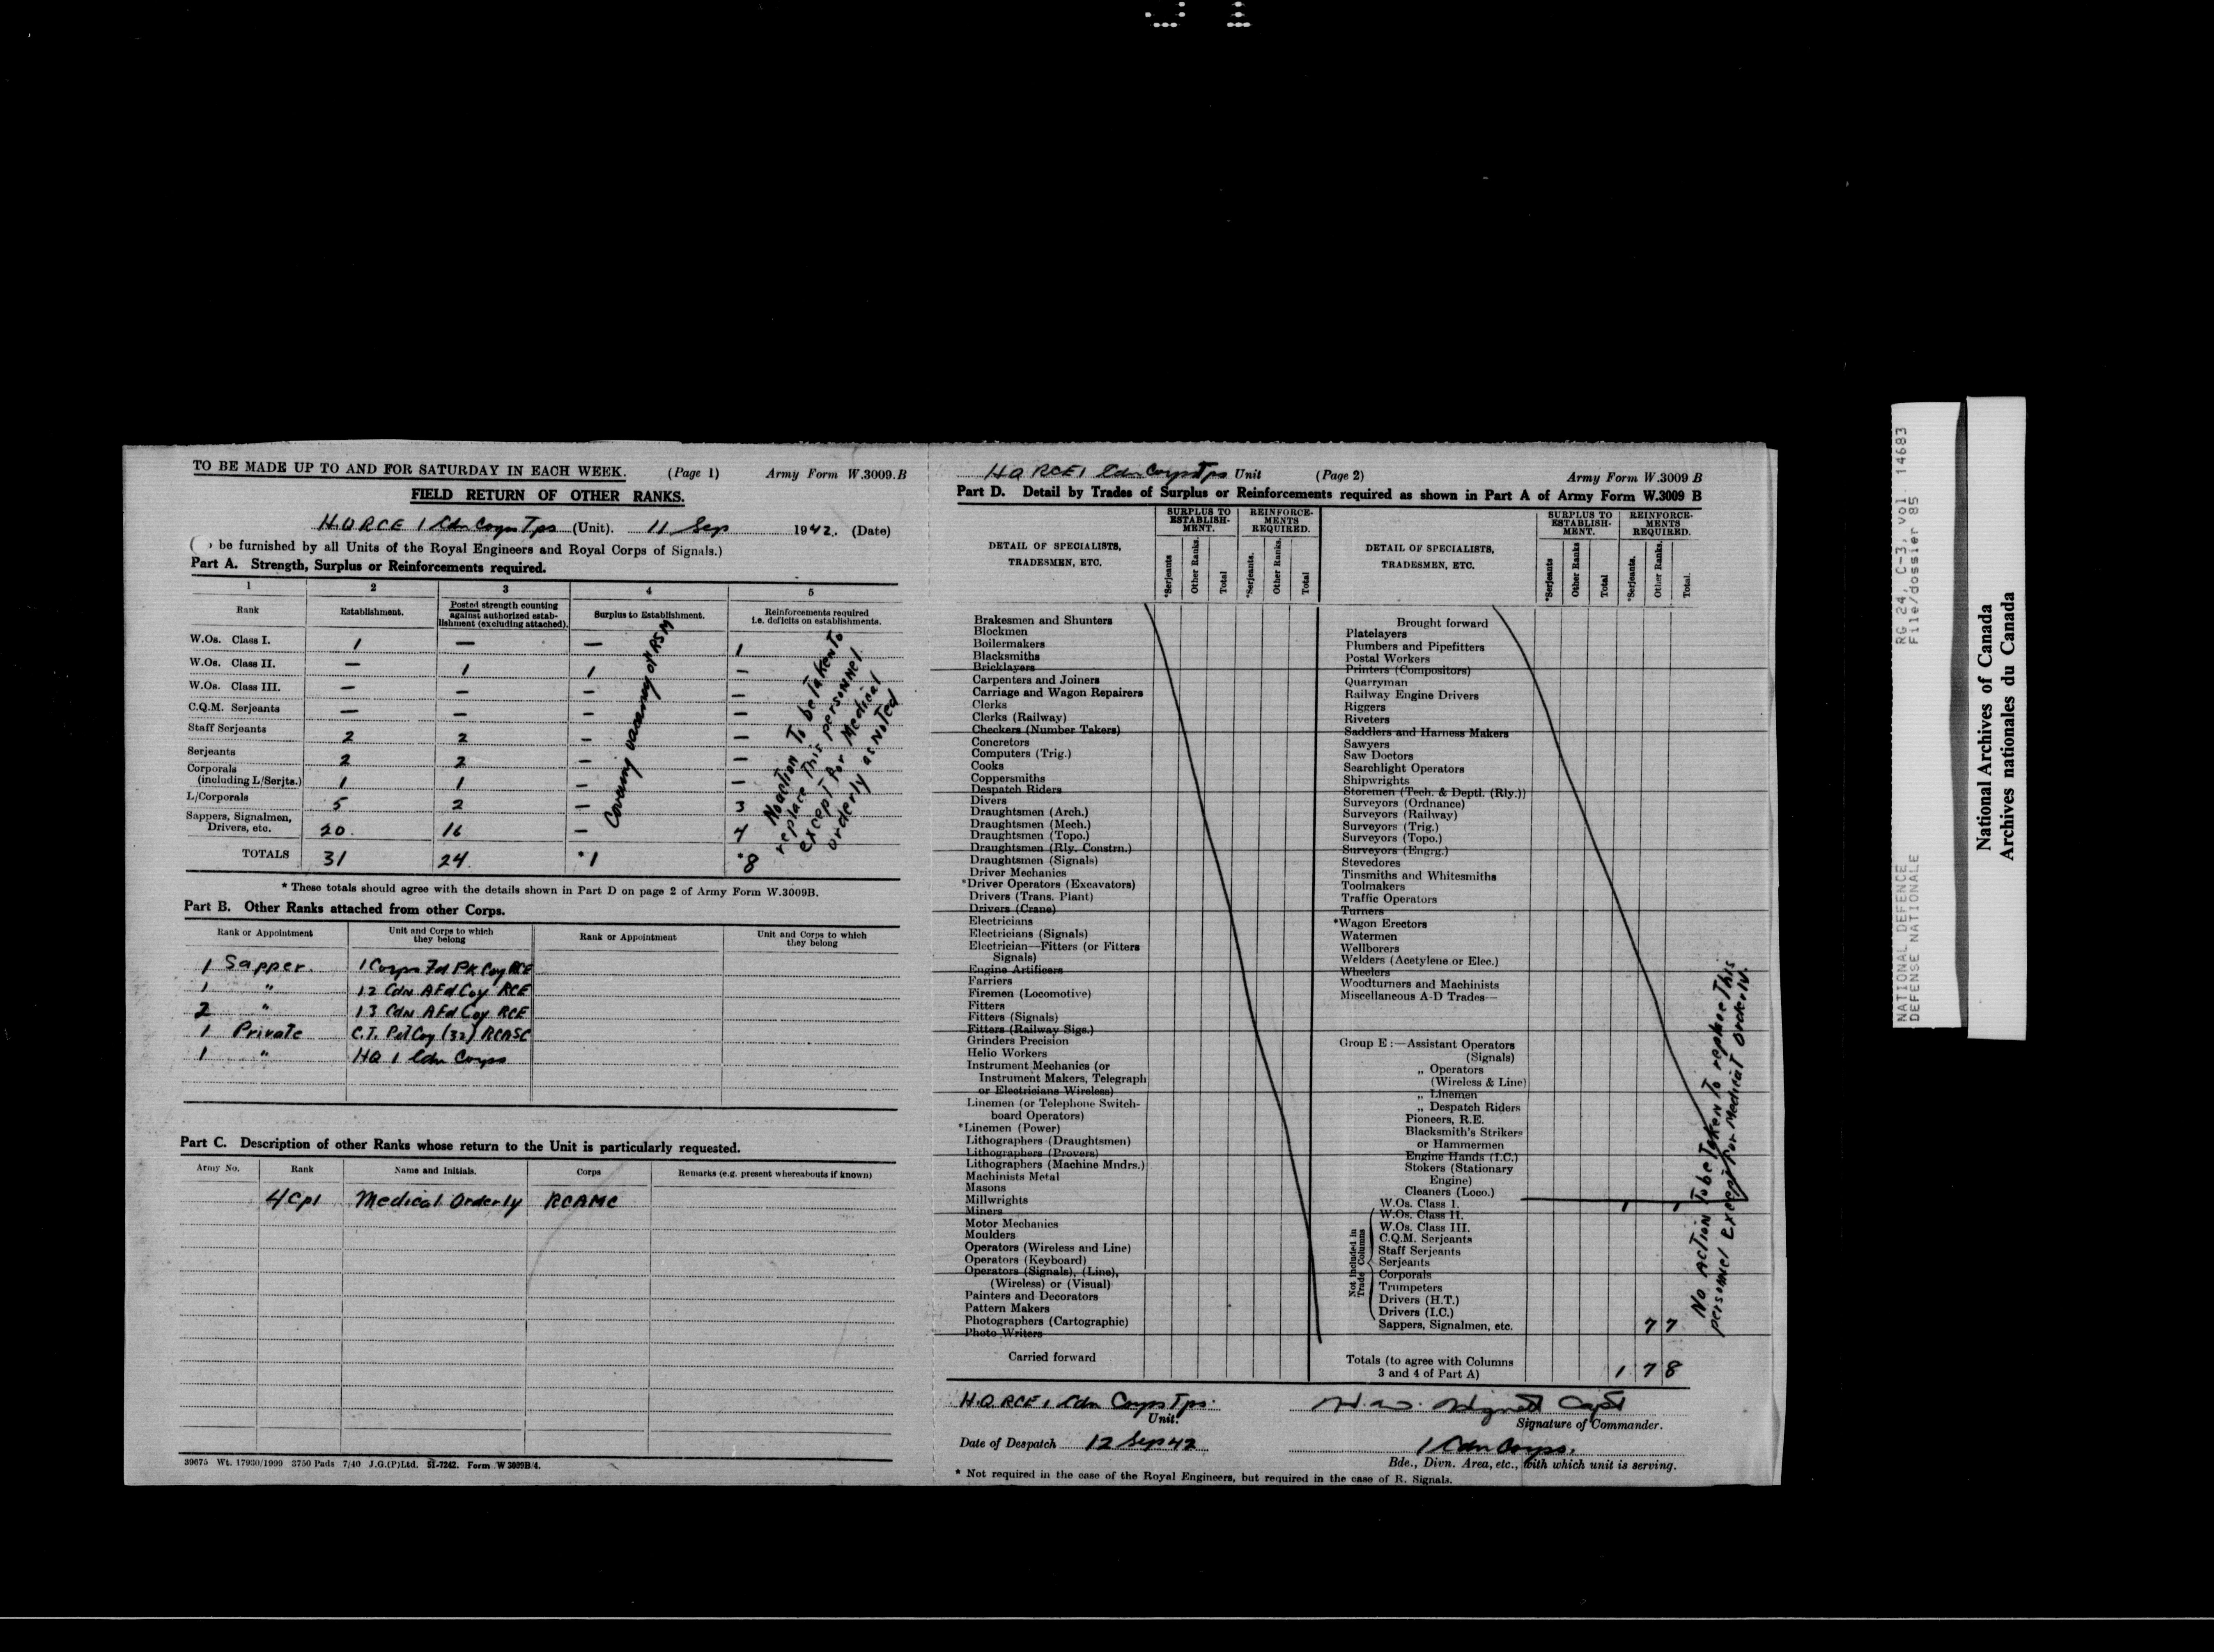 TO BE MADE UP TO AND FOR SATURDAY IN EACH WEEK. (Page 1) Army Form W.3009.B
FIELD RETURN OF OTHER RANKS.
H.Q RCE 1 Cdn Corps Tps (Unit). 11 Sep 1942. (Date)
be furnished by all Units of the Royal Engineers and Royal Corps of Signals.)
Part A. Strength, Surplus or Reinforcements required.
1 2 3 4 5
Rank Establishment. Posted strength counting against authorized estab- lishment (excluding attached). Surplus to Establishment. Reinforcements required i.e. deficits on establishments.
W.Os. Class I. 1 — — 1
W.Os. Class II. — 1 1 —
W.Os. Class III. — — — —
C.Q.M. Serjeants — — — —
Staff Serjeants 2 2 — —
Serjeants 2 2 — —
Corporals
(including L/Serjts.) 1 1 — —
L/Corporals 5 2 — 3
Sappers, Signalmen,
Drivers, etc. 20 16 — 4
TOTALS 31 24 *1 *8
Covering vacancy of RSM
No action to be taken to
replace this personnel
except for Medical
orderly as noted
* These totals should agree with the details shown in Part D on page 2 of Army Form W.3009B.
Part B. Other Ranks attached from other Corps.
Rank or Appointment Unit and Corps to which they belong Rank or Appointment Unit and Corps to which they belong
1 Sapper. 1 Corps Fd Pk Coy RCE
1 " 12 Cdn A Fd Coy RCE
2 " 13 Cdn A Fd Coy RCE
1 Private C.T. Pet Coy (32) RCASC
1 " HQ 1 Cdn Corps
Part C. Description of other Ranks whose return to the Unit is particularly requested.
Army No. Rank Name and Initials. Corps Remarks (e.g. present whereabouts if known)
Cpl Medical Orderly RCAMC
39675 Wt. 17930/1999 3750 Pads 7/40 J.G.(P)Ltd. 51-7242. Form W 3009B/4.
HQ RCE 1 Cdn Corps Tps Unit (Page 2) Army Form W.3009 B
Part D. Detail by Trades of Surplus or Reinforcements required as shown in Part A of Army Form W.3009 B
DETAIL OF SPECIALISTS, TRADESMEN, ETC. SURPLUS TO ESTABLISH- MENT. REINFORCE- MENTS REQUIRED.
*Serjeants. Other Ranks. Total *Serjeants. Other Ranks. Total
Brakesmen and Shunters
Blockmen
Boilermakers
Blacksmiths
Bricklayers
Carpenters and Joiners
Carriage and Wagon Repairers
Clerks
Clerks (Railway)
Checkers (Number Takers)
Concretors
Computers (Trig.)
Cooks
Coppersmiths
Despatch Riders
Divers
Draughtsmen (Arch.)
Draughtsmen (Mech.)
Draughtsmen (Topo.)
Draughtsmen (Rly. Constrn.)
Draughtsmen (Signals)
Driver Mechanics
*Driver Operators (Excavators)
Drivers (Trans. Plant)
Drivers (Crane)
Electricians
Electricians (Signals)
Electrician—Fitters (or Fitters
Signals)
Engine Artificers
Farriers
Firemen (Locomotive)
Fitters
Fitters (Signals)
Fitters (Railway Sigs.)
Grinders Precision
Helio Workers
Instrument Mechanics (or
Instrument Makers, Telegraph
or Electricians Wireless)
Linemen (or Telephone Switch-
board Operators)
*Linemen (Power)
Lithographers (Draughtsmen)
Lithographers (Provers)
Lithographers (Machine Mndrs.)
Machinists Metal
Masons
Millwrights
Miners
Motor Mechanics
Moulders
Operators (Wireless and Line)
Operators (Keyboard)
Operators (Signals), (Line),
(Wireless) or (Visual)
Painters and Decorators
Pattern Makers
Photographers (Cartographic)
Photo Writers
Carried forward
DETAIL OF SPECIALISTS, TRADESMEN, ETC. SURPLUS TO ESTABLISH- MENT. REINFORCE- MENTS REQUIRED.
*Serjeants Other Ranks Total *Serjeants. Other Ranks. Total.
Brought forward
Platelayers
Plumbers and Pipefitters
Postal Workers
Printers (Compositors)
Quarryman
Railway Engine Drivers
Riggers
Riveters
Saddlers and Harness Makers
Sawyers
Saw Doctors
Searchlight Operators
Shipwrights
Storemen (Tech. & Deptl. (Rly.))
Surveyors (Ordnance)
Surveyors (Railway)
Surveyors (Trig.)
Surveyors (Topo.)
Surveyors (Engrg.)
Stevedores
Tinsmiths and Whitesmiths
Toolmakers
Traffic Operators
Turners
*Wagon Erectors
Watermen
Wellborers
Welders (Acetylene or Elec.)
Wheelers
Woodturners and Machinists
Miscellaneous A-D Trades—
Group E :—Assistant Operators
(Signals)
„ Operators
(Wireless & Line)
„ Linemen
„ Despatch Riders
Pioneers, R.E.
Blacksmith's Strikers
or Hammermen
Engine Hands (I.C.)
Stokers (Stationary
Engine)
Cleaners (Loco.)
Not Included in Trade Columns
W.Os. Class I. 1 1
W.Os. Class II.
W.Os. Class III.
C.Q.M. Serjeants
Staff Serjeants
Serjeants
Corporals
Trumpeters
Drivers (H.T.)
Drivers (I.C.)
Sappers, Signalmen, etc. 7 7
Totals (to agree with Columns
3 and 4 of Part A) 1 7 8
No action to be taken to replace this
personnel except for Medical orderly.
H.Q RCE 1 Cdn Corps Tps. Capt
Unit. Signature of Commander.
Date of Despatch 12 Sep 42 1 Cdn Corps.
Bde., Divn. Area, etc., with which unit is serving.
* Not required in the case of the Royal Engineers, but required in the case of R. Signals.
NATIONAL DEFENCE RG 24, C-3, vol. 14683
DEFENSE NATIONALE File/dossier 85
National Archives of Canada
Archives nationales du Canada